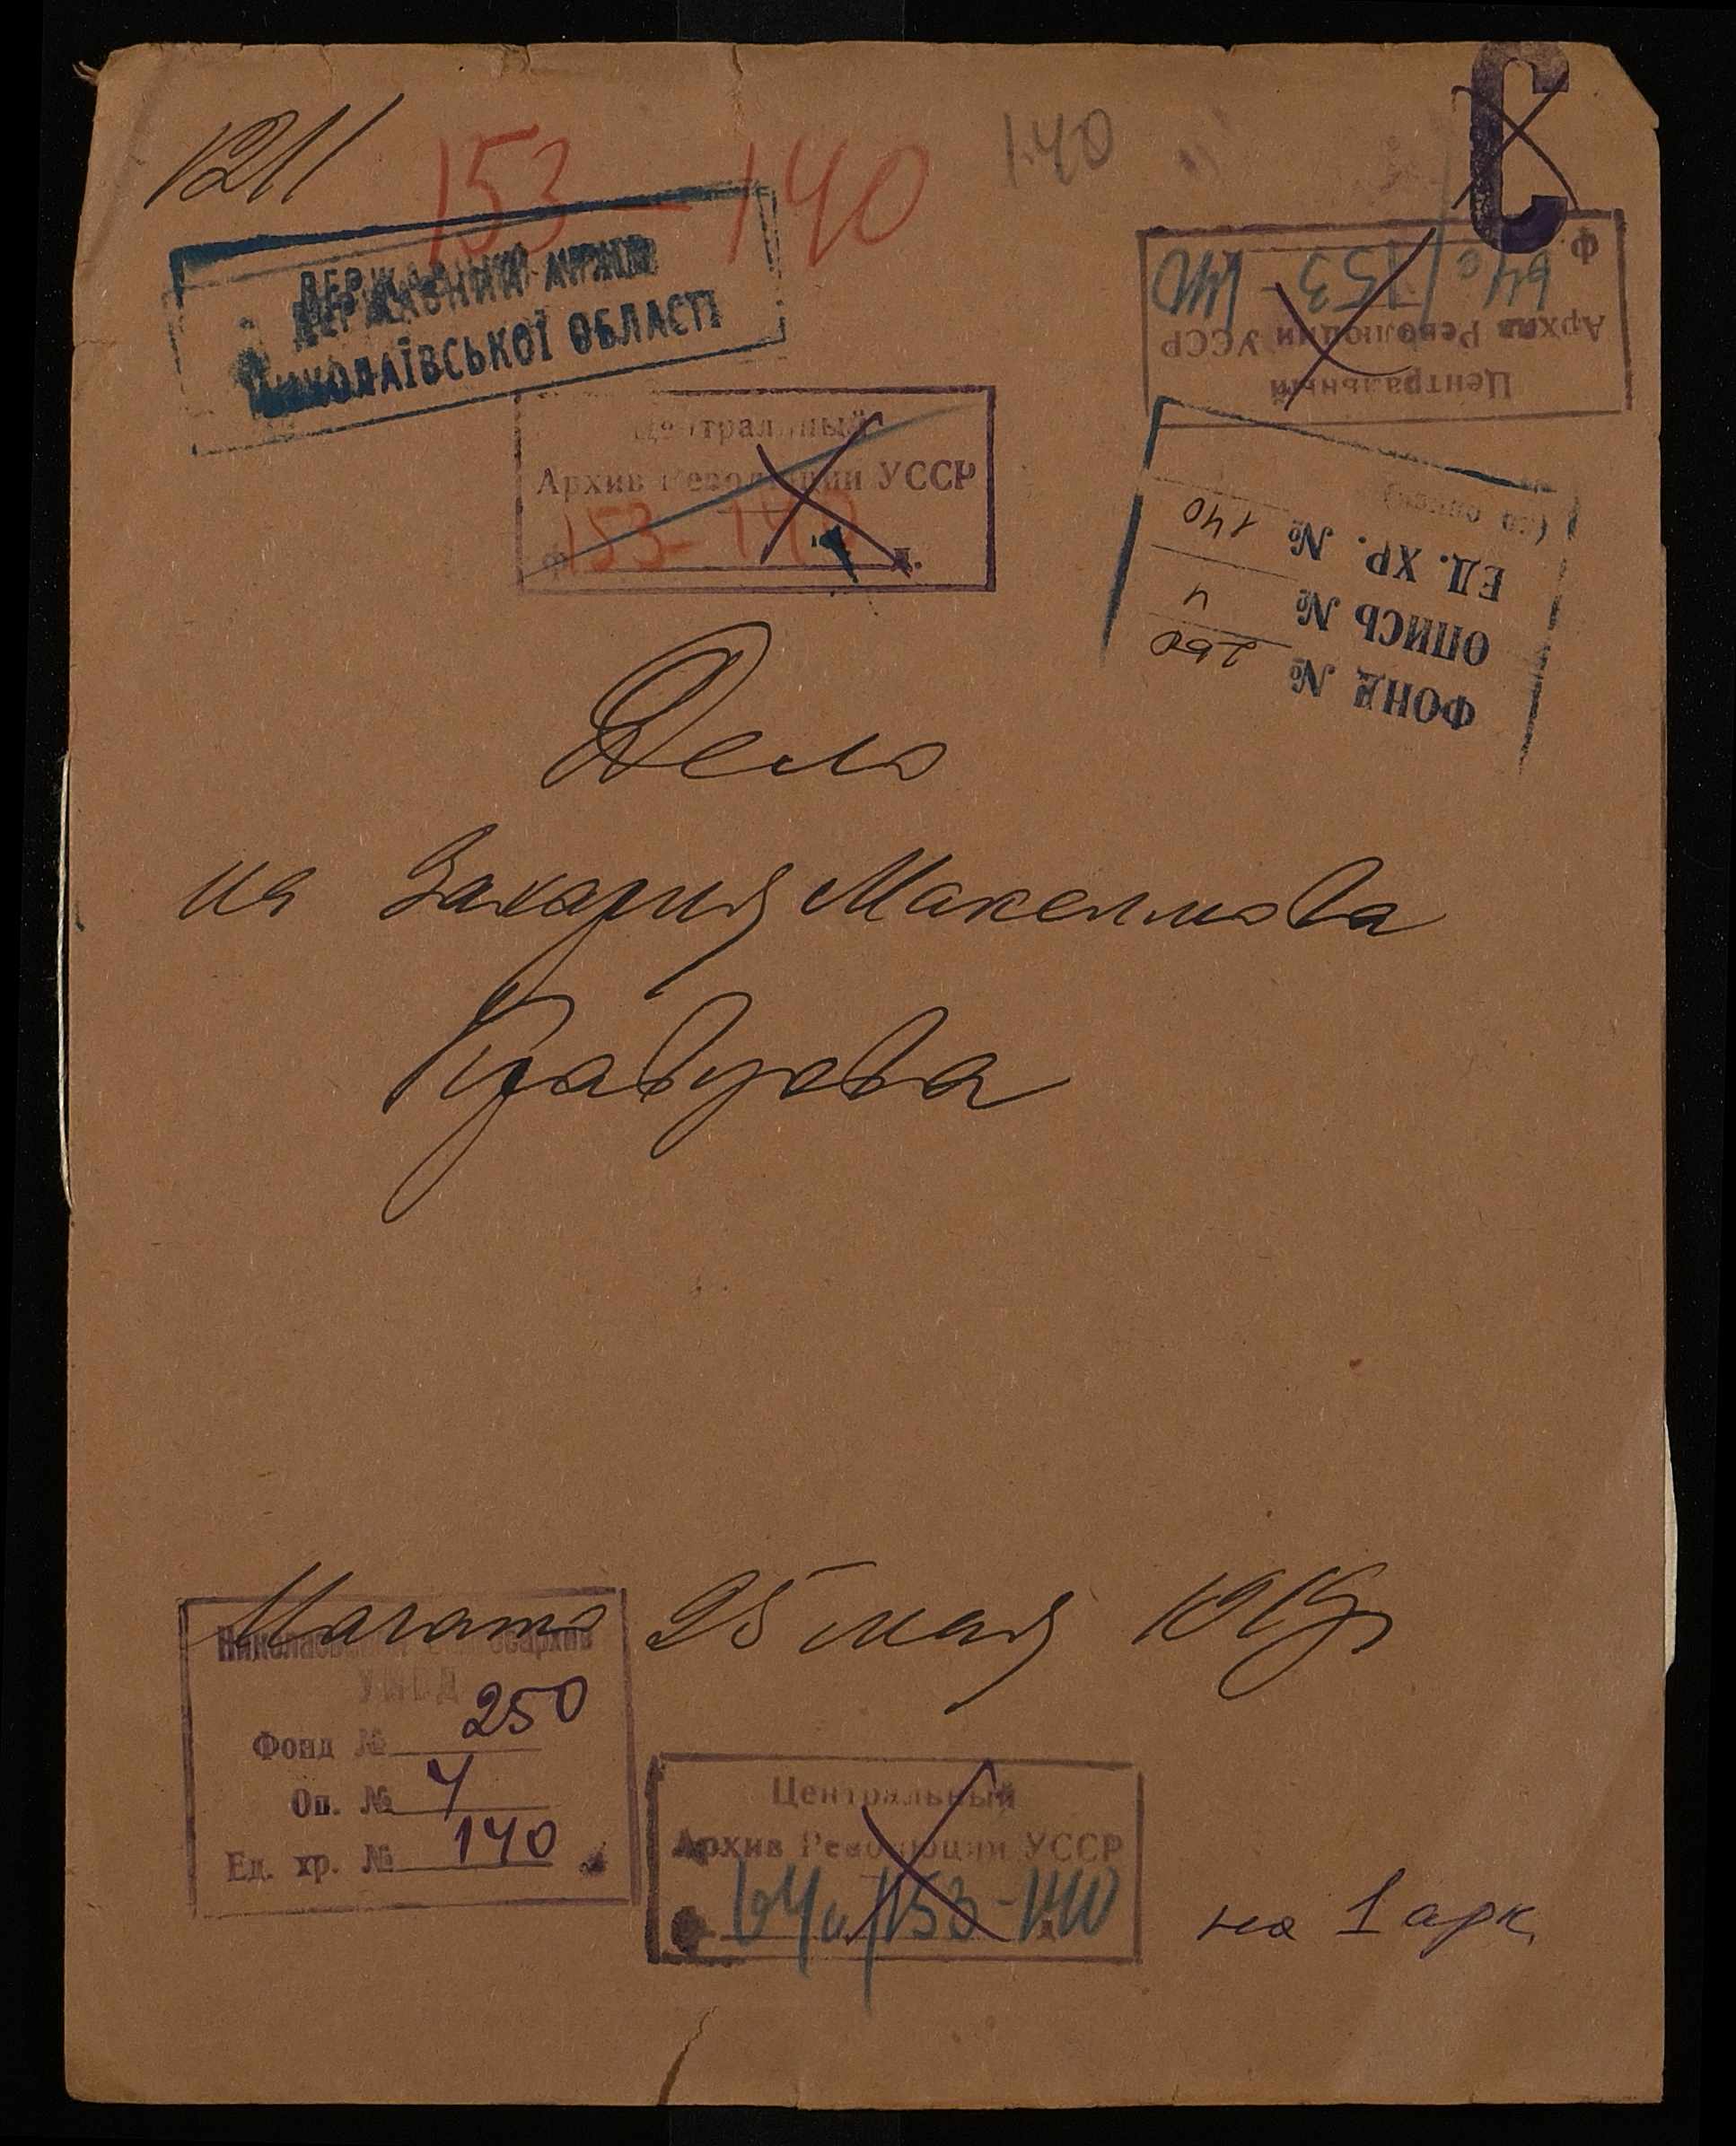 1211
153-140
140
С
ДЕРЖАВНИЙ АРХІВ
МИКОЛАЇВСЬКОЇ ОБЛАСТІ
Ф 64с/153-140
Архив Революции УССР
Центральный
Центральный
Архив Революции УССР
ф 153-140 д.
(по описи)
ЕД. ХР. № 140
ОПИСЬ № 4
ФОНД № 250
Дело
на Захария
Начато 25 мая 1919 г
Николаевский Облгосархив
УМВД
Фонд № 250
Оп. № 4
Ед. хр. № 140
Центральный
Архив Революции УССР
64с/153-140
на 1 арк.